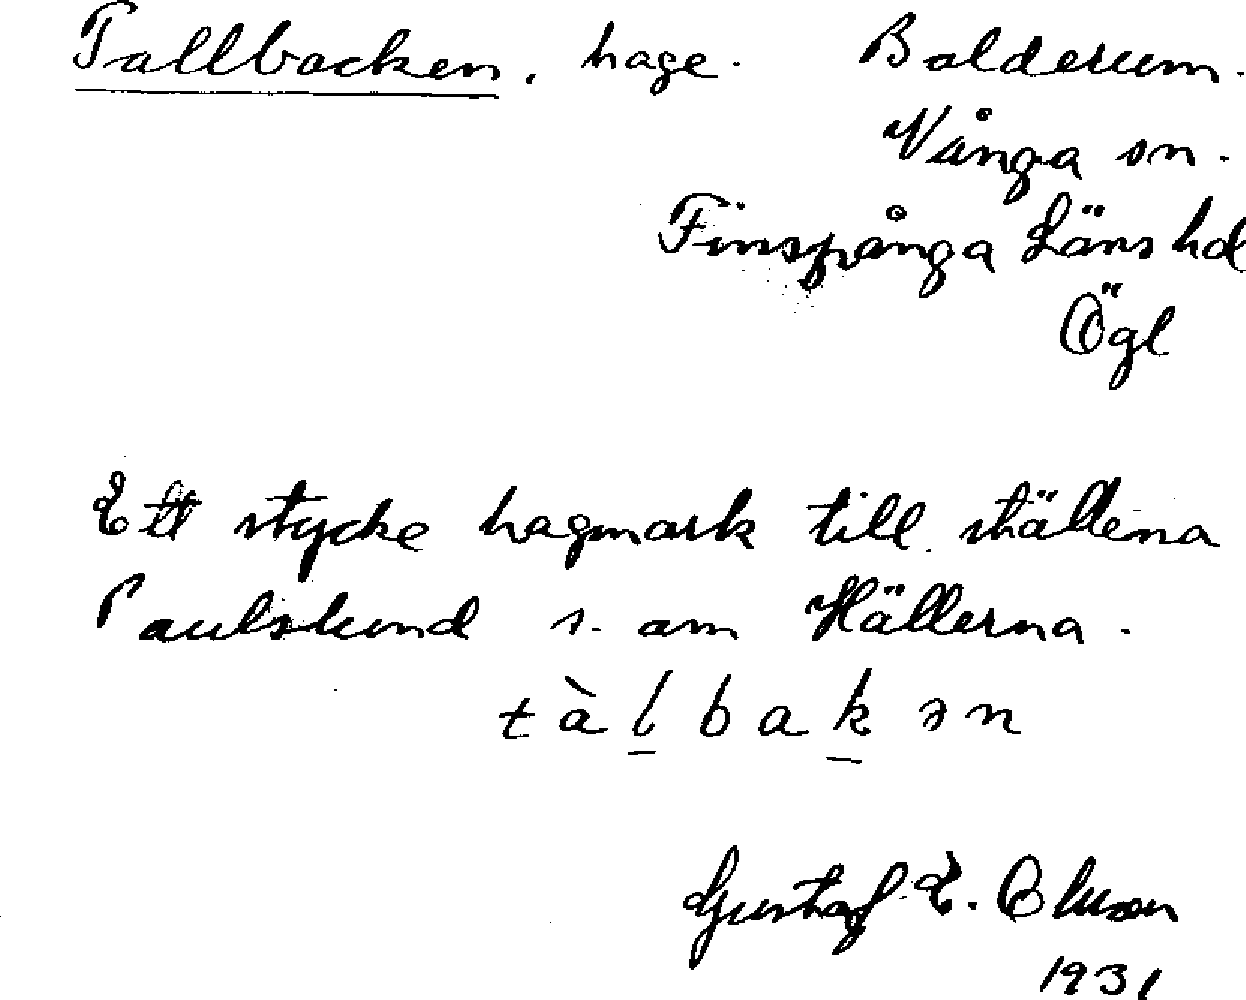 Tallbacken, hage. Balderum.
Vånga sn.
Finspånga Läns hd
Ögl
Ett stycke hagmark till ställena
Paulskund s. om Hällerna.
tàlbakən
Gustaf E. Olsson
1931